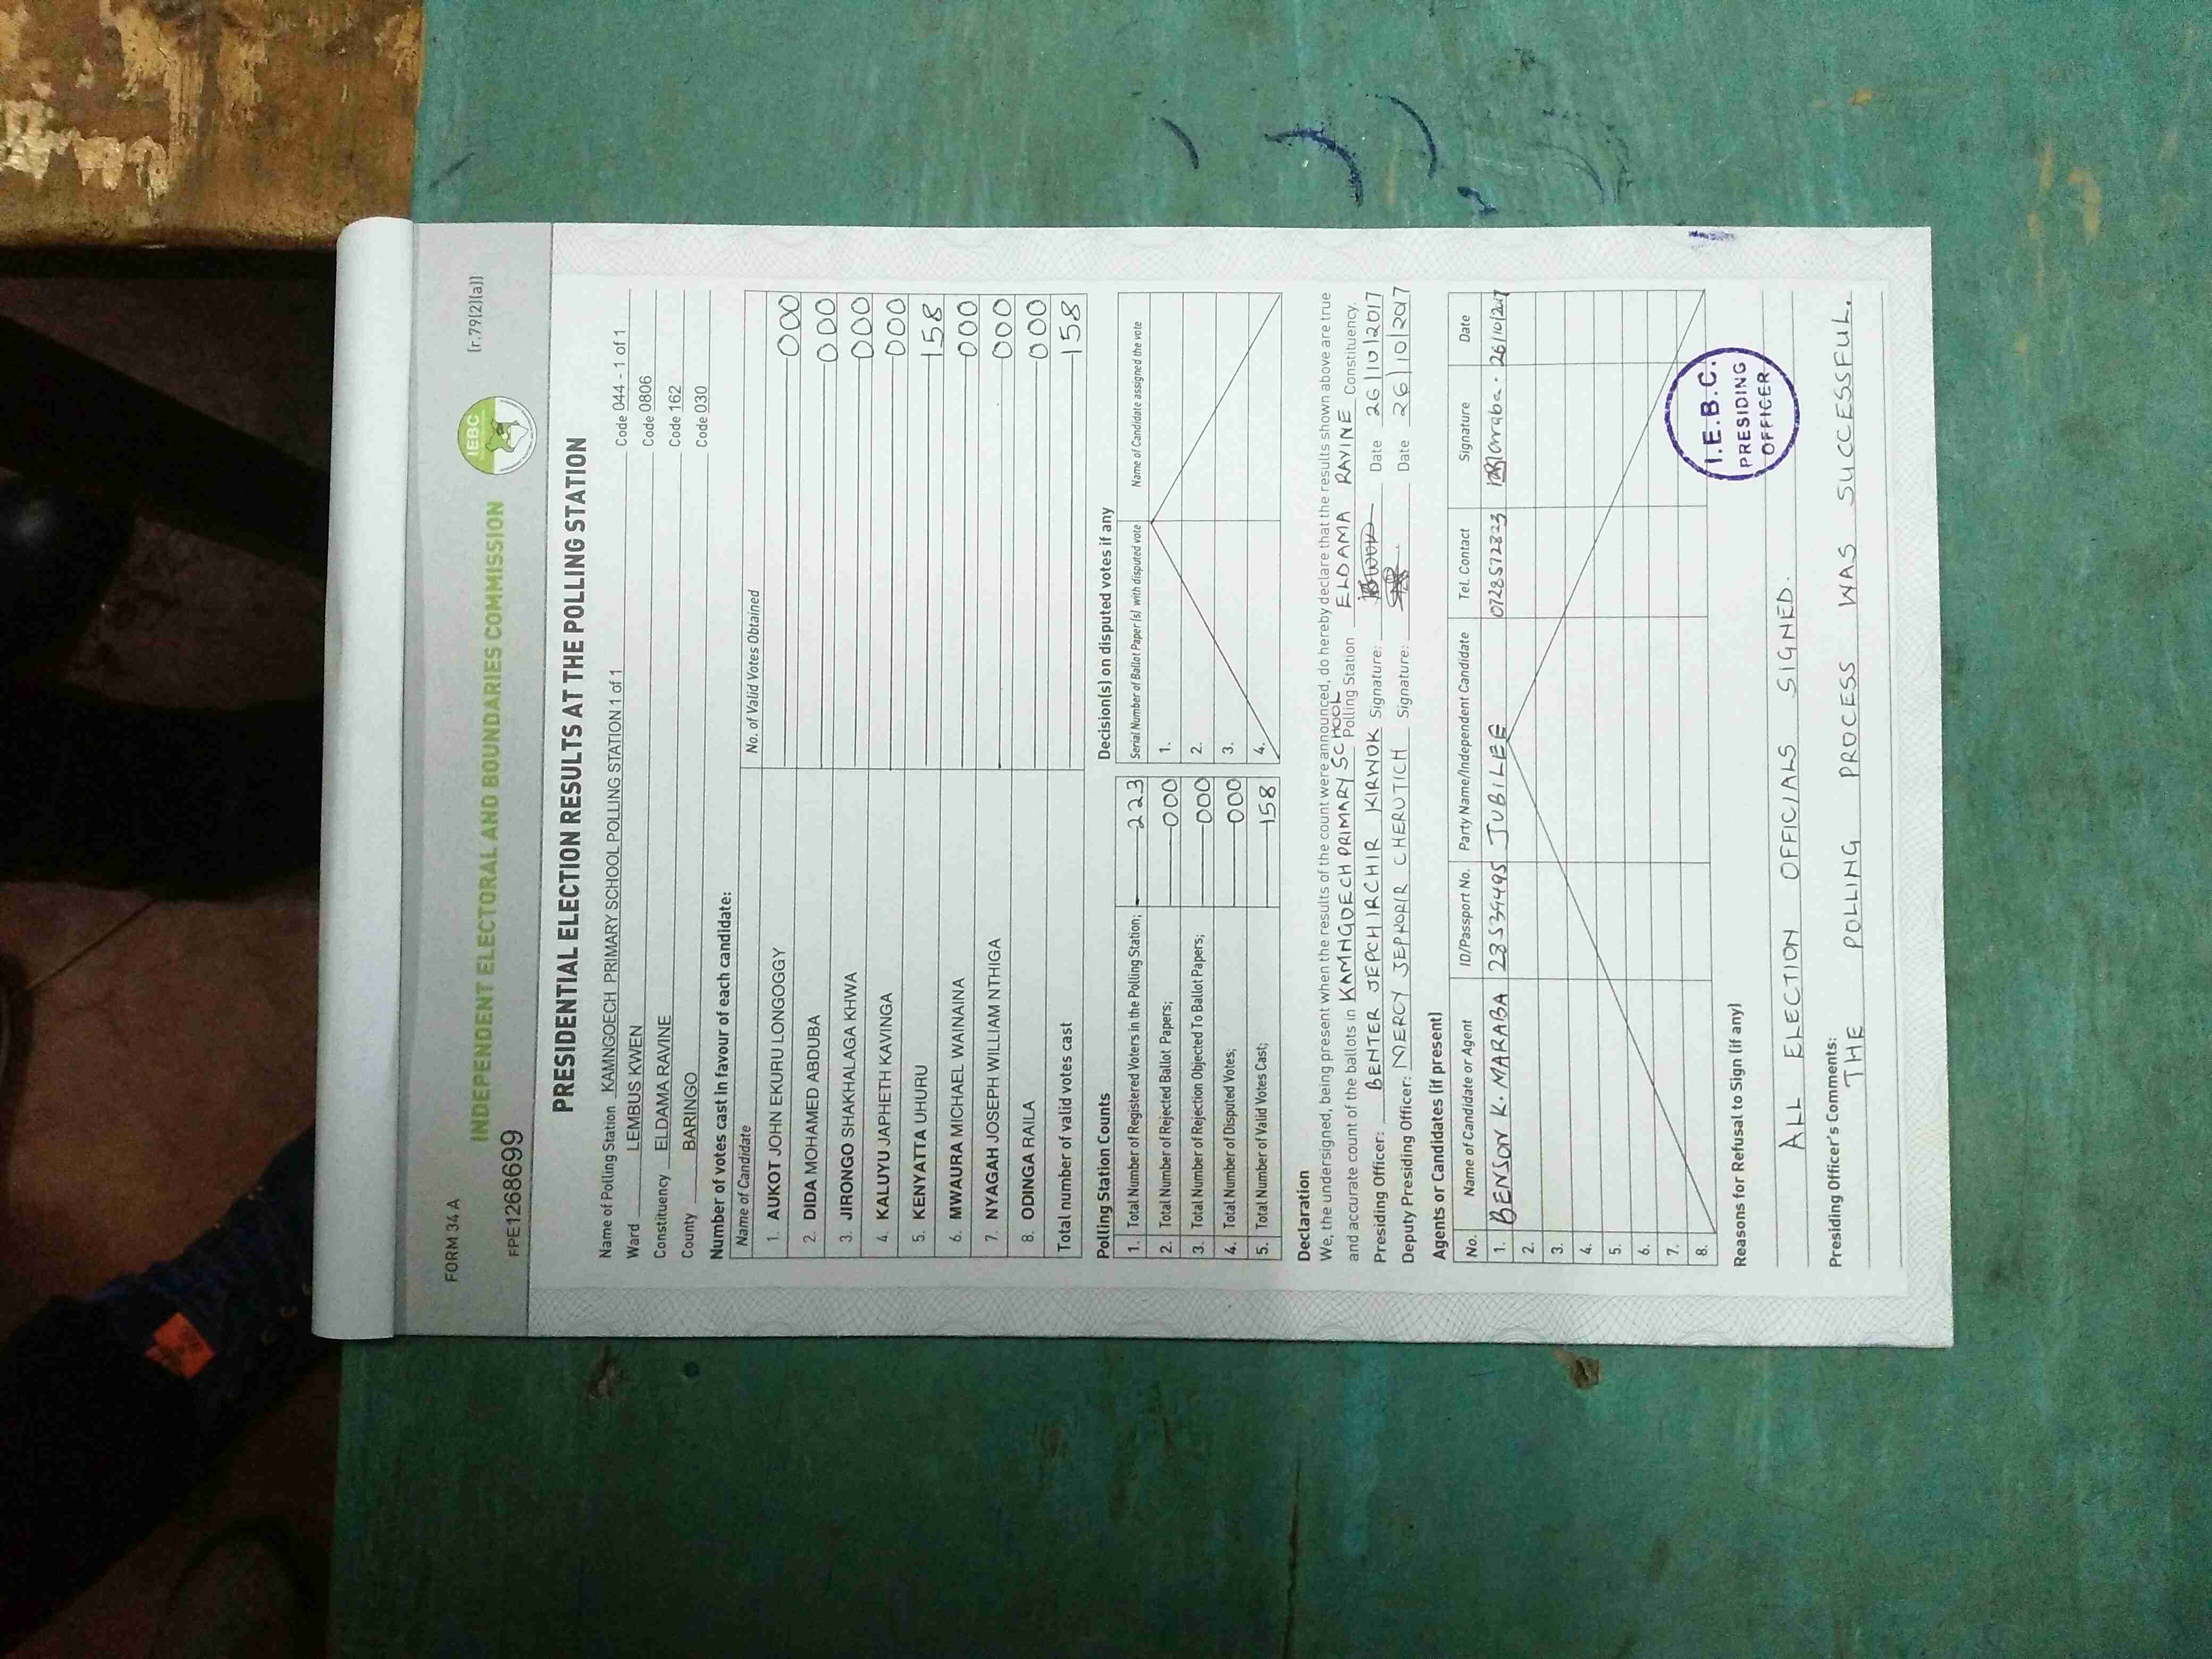 FORM 34 A
(r.79(2)(a))
IEBC
INDEPENDENT ELECTORAL AND BOUNDARIES COMMISSION
FPE1268699
PRESIDENTIAL ELECTION RESULTS AT THE POLLING STATION
Name of Polling Station KAMNGOECH PRIMARY SCHOOL POLLING STATION 1 of 1 Code 044 - 1 of 1
Ward LEMBUS KWEN Code 0806
Constituency ELDAMA RAVINE Code 162
County BARINGO Code 030
Number of votes cast in favour of each candidate:
Name of Candidate No. of Valid Votes Obtained
1. AUKOT JOHN EKURU LONGOGGY 000
2. DIDA MOHAMED ABDUBA 000
3. JIRONGO SHAKHALAGA KHWA 000
4. KALUYU JAPHETH KAVINGA 000
5. KENYATTA UHURU 158
6. MWAURA MICHAEL WAINAINA 000
7. NYAGAH JOSEPH WILLIAM NTHIGA 000
8. ODINGA RAILA 000
Total number of valid votes cast 158
Polling Station Counts
1. Total Number of Registered Voters in the Polling Station; 223
2. Total Number of Rejected Ballot Papers; 000
3. Total Number of Rejection Objected To Ballot Papers; 000
4. Total Number of Disputed Votes; 000
5. Total Number of Valid Votes Cast; 158
Decision(s) on disputed votes if any
Serial Number of Ballot Paper(s) with disputed vote Name of Candidate assigned the vote
1.
2.
3.
4.
Declaration
We, the undersigned, being present when the results of the count were announced, do hereby declare that the results shown above are true
and accurate count of the ballots in KAMNGOECH PRIMARY SCHOOL Polling Station ELDAMA RAVINE Constituency.
Presiding Officer: BENTER JEPCHIRCHIR KIRWOK Signature: Date 26/10/2017
Deputy Presiding Officer: MERCY JEPKORIR CHERUTICH Signature: Date 26/10/2017
Agents or Candidates (if present)
No. Name of Candidate or Agent ID/Passport No. Party Name/Independent Candidate Tel. Contact Signature Date
1. BENSON K. MARABA 28534495 JUBILEE 0728572823 26/10/2017
2.
3.
4.
5.
6.
7.
8.
I.E.B.C.
PRESIDING
OFFICER
Reasons for Refusal to Sign (if any)
ALL ELECTION OFFICIALS SIGNED.
Presiding Officer's Comments:
THE POLLING PROCESS WAS SUCCESSFUL.